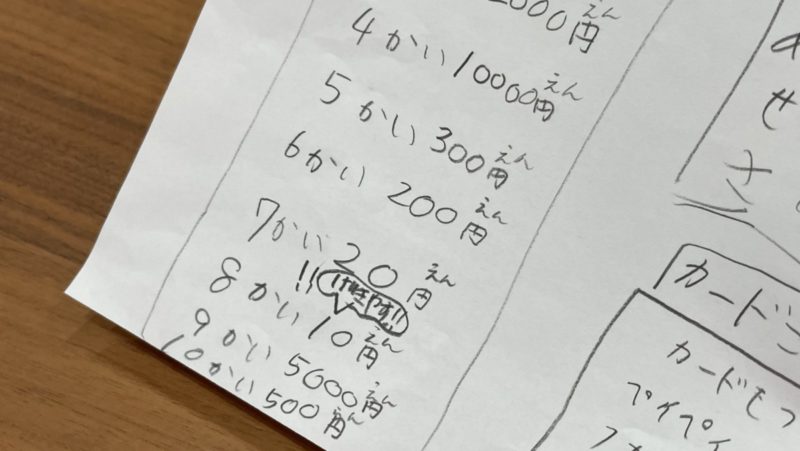 000円えん
4かい10000円えん
5かい300円えん
6かい200円えん
7かい20円えん
!!げきやす!!
8かい10円えん
9かい5000円えん
10かい500円えん
せ
さ
カード
カードモ
プイプイ